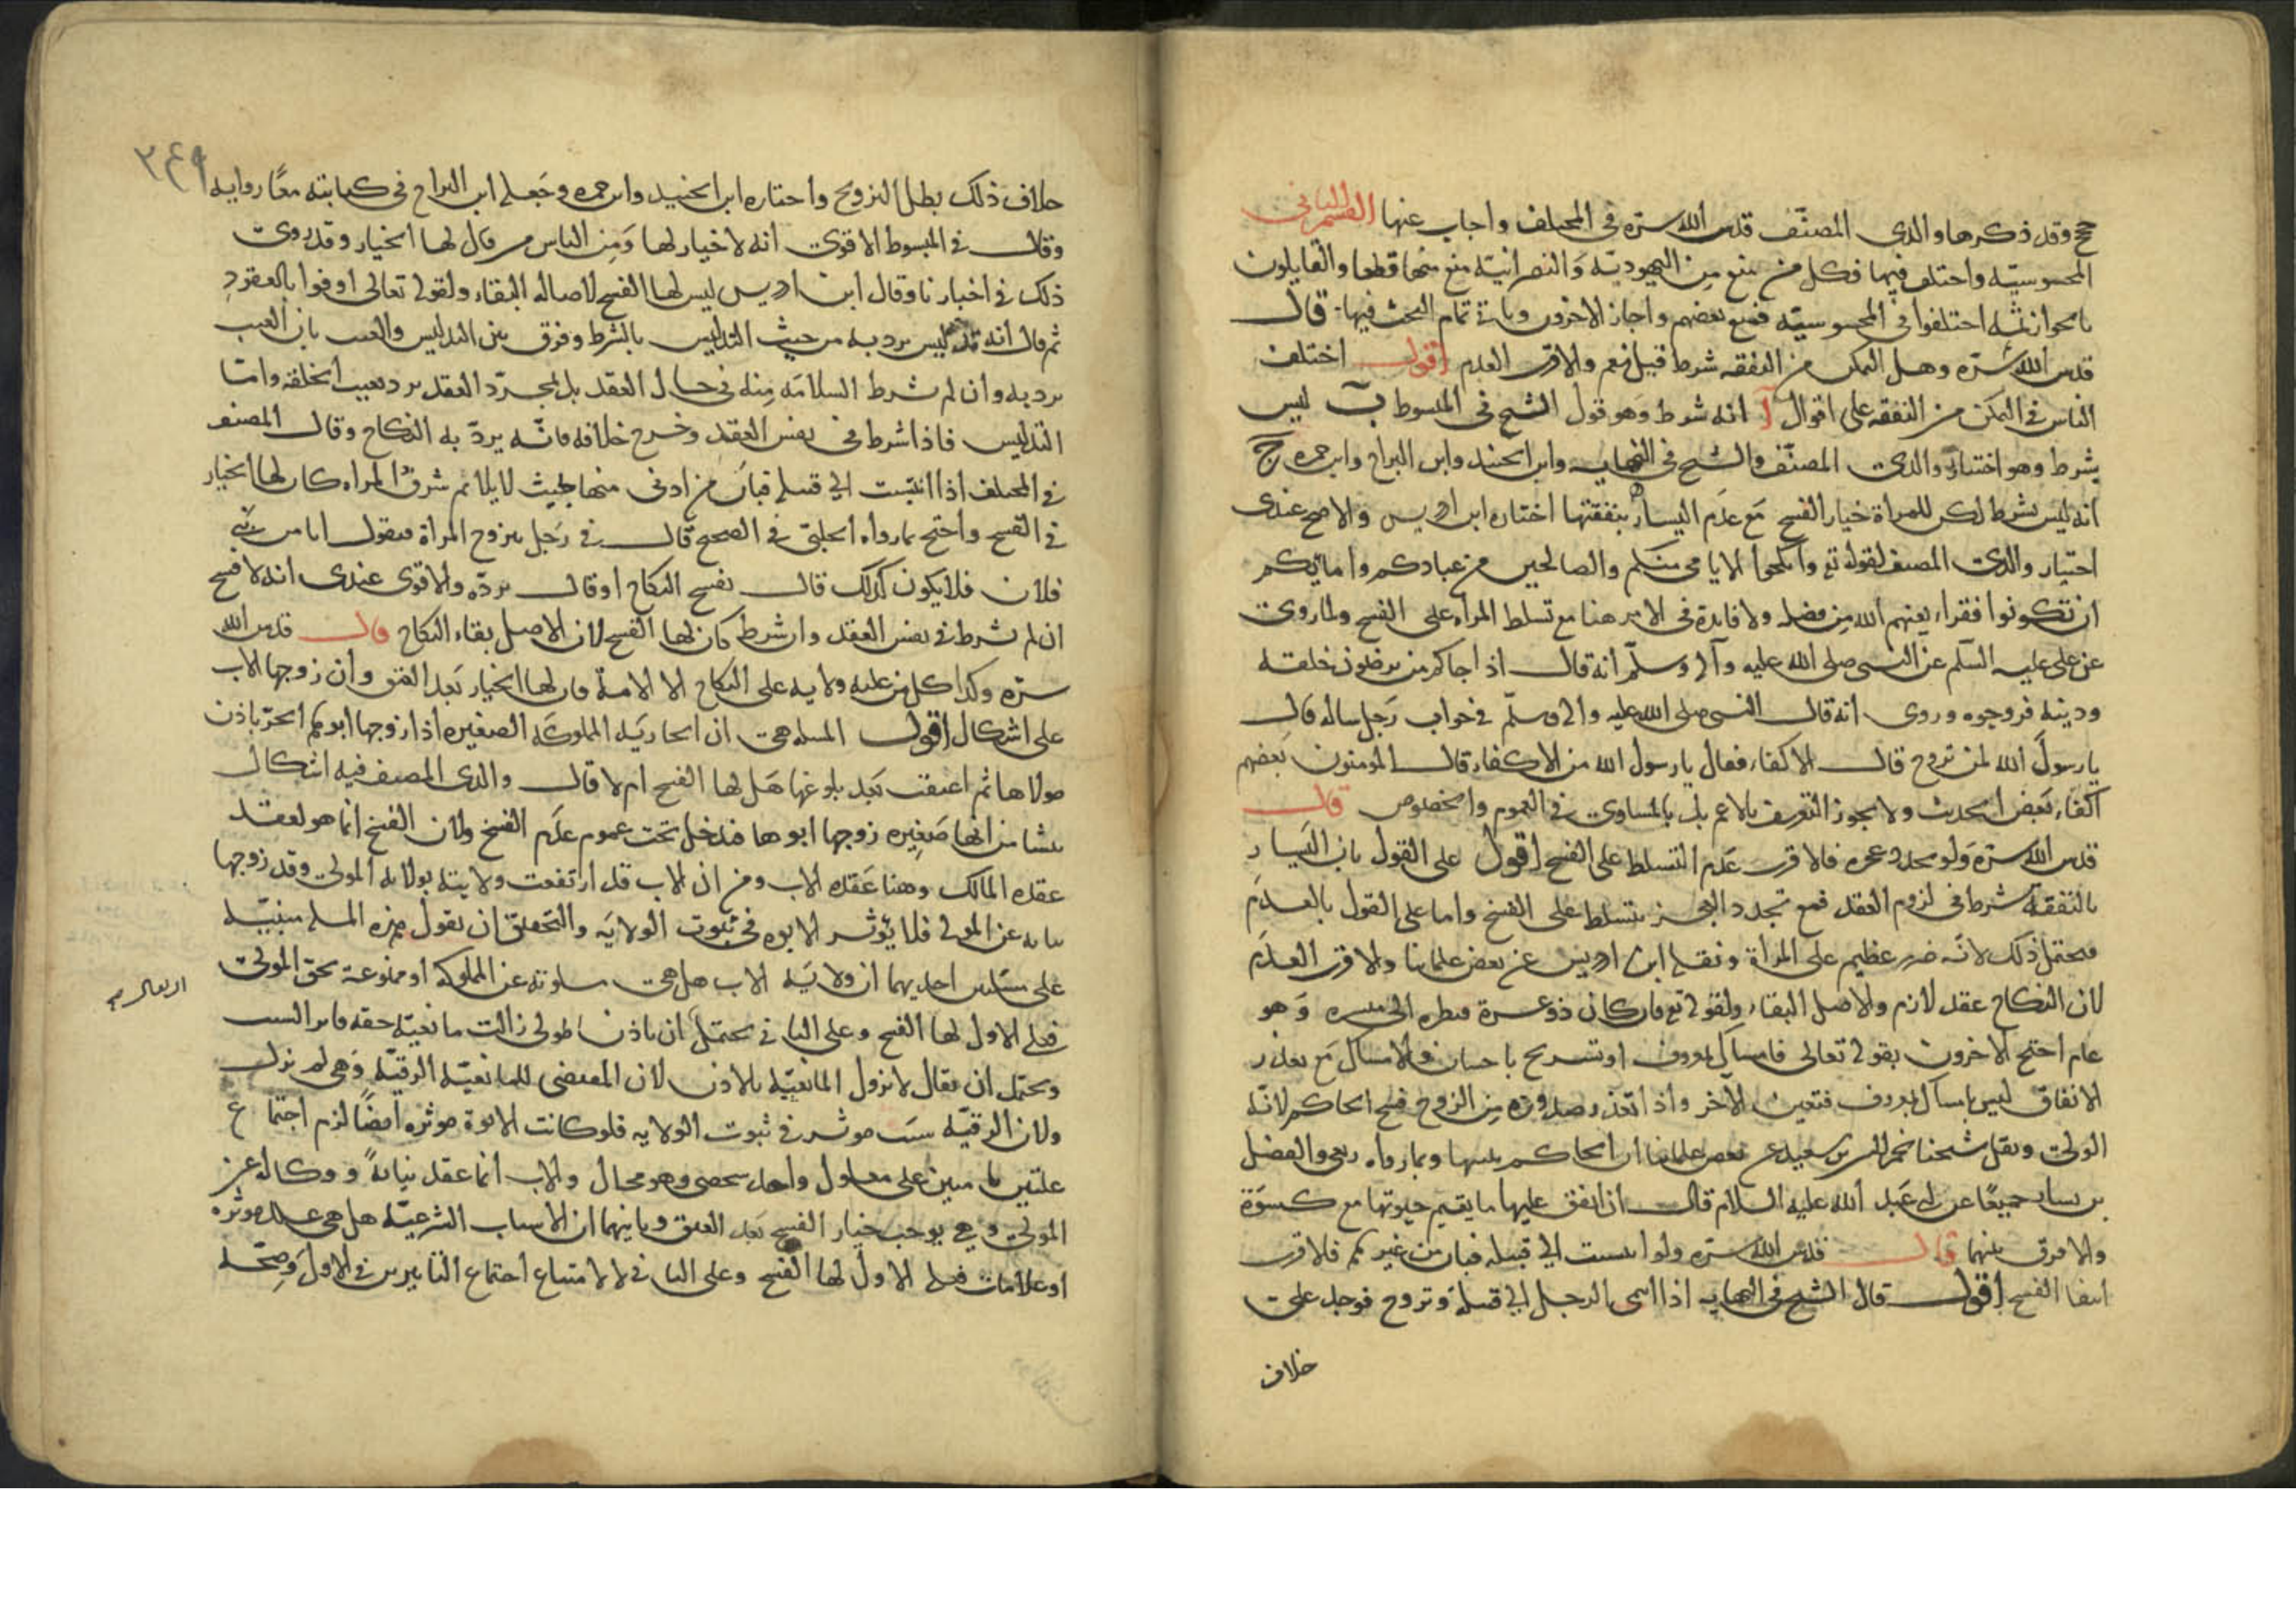 حج وقد ذكرها والدى المصنّف قدس الله سرّه فى المختلف واجاب عنها القسم الثانى
المجوسيّه واختلف فيها فكل من منع من اليهوديّه والنصرانيّة منع منها قطعا والقايلون
بالجواز ثمّه اختلفوا فى المجوسيّه فمنع بعضهم واجاز الاخرون وياتى تمام البحث فيها قال
قدس الله سرّه وهل التمكن من النفقه شرط قيل نعم والاقرب العدم اقول اختلف
الناس فى التمكن من النفقه على اقوال آ انه شرط وهو قول الشيخ فى المبسوط ب ليس
بشرط وهو اختيار والدى المصنّف والشيخ فى النهايه وابن الجنيد وابن البراج وابن حمزه ج
انه ليس بشرط لكن للمراة خيار الفسخ مع عدم اليسار بنفقتها اختاره ابن ادريس والاصح عندى
اختيار والدى المصنف لقوله تع وانكحوا الايامى منكم والصالحين من عبادكم وامايكم
ان تكونوا فقراء يغنهم الله من فضله ولا فايدة فى الامر هنا مع تسلط المراه على الفسخ ولما روى
عن على عليه السلم عن النبى صلى الله عليه وآله وسلّم انه قال اذا جاكم من ترضون خلقه
ودينه فزوجوه وروى انه قال النبى صلى الله عليه واله وسلّم فى جواب رجل ساله قال
يا رسول الله لمن نزوج قال الاكفاء فقال يا رسول الله من الاكفاء قال المومنون بعضهم
اكفاء بعض الحديث ولا يجوز التعريف بالاعم بل بالمساوى فى العموم والخصوص قال
قدس الله سرّه ولو تجدد عجزه فالاقرب عدم التسلط على الفسخ اقول على القول بان اليسار
بالنفقة شرط فى لزوم العقد فمع تجدد العجز تتسلط على الفسخ واما على القول بالعدم
فيحتمل ذلك لانّه ضرر عظيم على المراة ونقله ابن ادريس عن بعض علماينا والاقرب العدم
لان النكاح عقد لازم والاصل البقاء ولقوله تع فان كان ذو عسرة فنظره الى ميسره وهو
عام احتج الاخرون بقوله تعالى فامساك بمعروف او تسريح باحسان والامساك مع تعذر
الانفاق ليس بامساك بمعروف فتعين الآخر واذا تعذر صدوره من الزوج فسخ الحاكم لانّه
الولى ونقل شيخنا نجم الدين بن سعيد عن بعض علماينا ان الحاكم يبينها وبما رواه ربعى والفضل
بن يسار جميعًا عن ابى عبد الله عليه السلام قال ان انفق عليها ما يقيم حيوتها مع كسوة
والا فرق بينهما قال قدس الله سرّه ولو انتسب الى قبيله فبان من غيرهم فالاقرب
انتفا الفسخ اقول قال الشيخ فى النهايه اذا انتمى الرجل الى قبيلة وتزوج فوجد على
خلاف
٣٤٩
خلاف ذلك بطل التزويج واختاره ابن الجنيد وابن حمزه وجعله ابن البراج فى كتابيه معًا روايه
وقال فى المبسوط الاقوى انه لا خيار لها ومن الناس من قال لها الخيار وقد روى
ذلك فى اخبارنا وقال ابن ادريس ليس لها الفسخ لاصاله البقاء ولقوله تعالى اوفوا بالعقود
ثم قال انه تدليس يرد به من حيث التدليس بالشرط وفرق بين التدليس والعيب بان العيب
يرد به وان لم يشرط السلامة منه فى حال العقد بل بمجرّد العقد يرد بعيب الخلقه وامّا
التدليس فاذا شرط فى نفس العقد وخرج خلافه فانّه يردّ به النكاح وقال المصنف
فى المختلف اذا انتسب الى قبيله فبان من ادنى منها بحيث لا يلائم شرف المراه كان لها الخيار
فى الفسخ واحتج بما رواه الحلبى فى الصحيح قال فى رجل يتزوج المراة فيقول انا من بنى
فلان فلا يكون كذلك قال تفسخ النكاح او قال تردّه والاقوى عندى انه لا فسخ
ان لم يشرط فى نفس العقد وان شرط كان لها الفسخ لان الاصل بقاء النكاح قال قدس الله
سرّه وكذا كل من عليه ولايه على النكاح الا الامة فان لها الخيار بعد العتق وان زوجها الاب
على اشكال اقول المسله هى ان الجاريه المملوكة الصغيره اذا زوجها ابوهم الحرّ باذن
مولاها ثم اعتقت بعد بلوغها هل لها الفسخ ام لا قال والدى المصنف فيه اشكال
ينشا من انها صغيره زوجها ابوها فتدخل تحت عموم عدم الفسخ ولان الفسخ انما هو لعقد
عقده المالك وهنا عقده الاب ومن ان الاب قد ارتفعت ولايته بولايه المولى وقد زوجها
نيابه عن المولى فلا يؤثر الابوه فى ثبوت الولايه والتحقيق ان نقول هذه المسله مبنيّه
على مسئلتين احديهما ان ولايه الاب هل هى مسلوبة عن المملوكه او ممنوعة بحق المولى
فعلى الاول لها الفسخ وعلى الثانى يحتمل ان باذن المولى زالت مانعيّة حقه فاثر السبب
ويحتمل ان يقال لا تزول المانعيّه بالاذن لان المقتضى للمانعيّه الرقيّه وهى لم تزل
ولان الرقيّه سبب موثر فى ثبوت الولايه فلو كانت الابوة موثره ايضًا لزم اجتماع
علتين تامتين على معلول واحد شخصى وهو محال والاب انما عقد نيابةً ووكاله عن
المولى وهى توجب خيار الفسخ بعد العتق وثانيهما ان الاسباب الشرعيّه هل هى علل موثره
او علامات فعلى الاول لها الفسخ وعلى الثانى لا لامتناع اجتماع التاثيرين فى الاول وصحّه